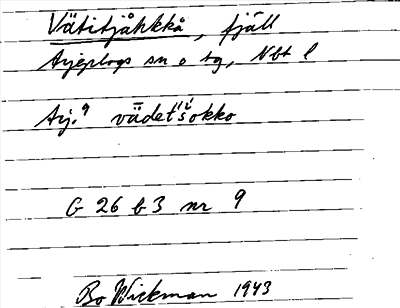 Vätitjåkkå, fjäll
Arjeplogs sn o tg, Nbt l
Arj. 9 vādet'šokko
G 26 b 3 nr 9
Bo Wickman 1943